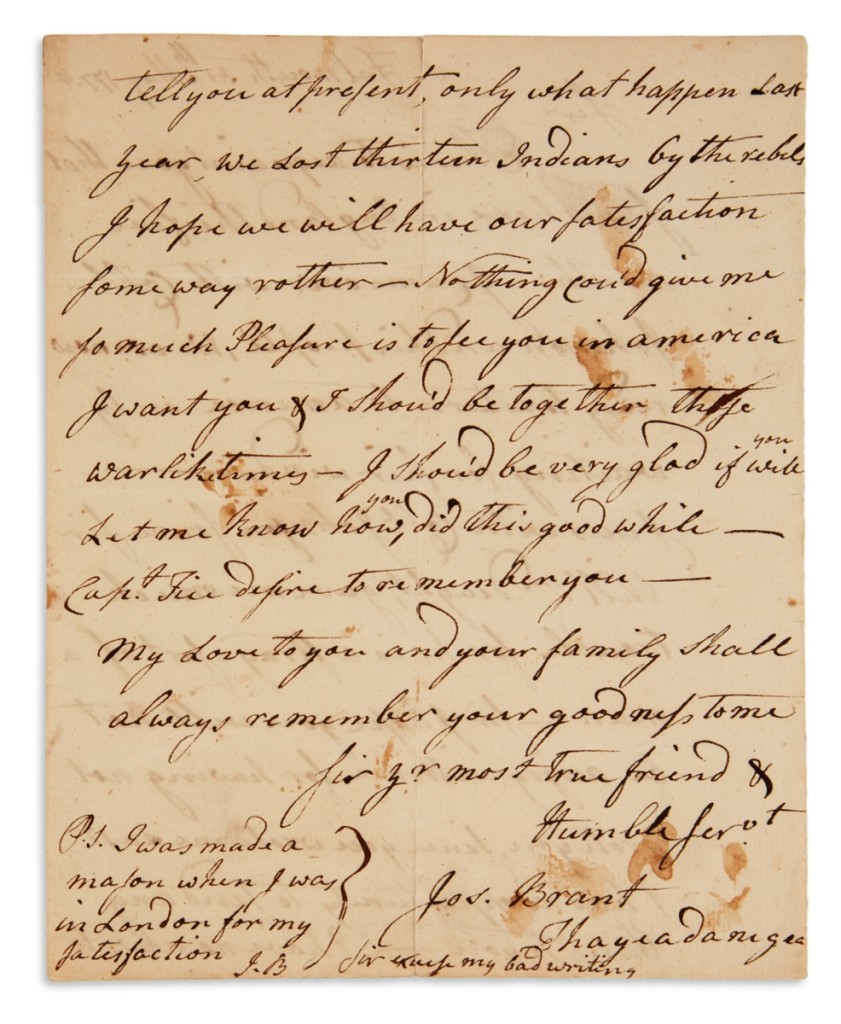 tell you at present, only what happen Last
year, we Lost thirteen Indians by the rebels
I hope we will have our satesfaction
some way rother — Nothing cou'd give me
so much Pleasure is to see you in america
I want you & I shou'd be together these
warlike times — I shou'd be very glad if you will
Let me know how you, did this good while —
Capt. Tice desire to remember you —
My Love to you and your family shall
always remember your goodness to me
sir yr. most true friend &
Humble servt
Jos. Brant
Thayeadanegea
P.S. I was made a
mason when I was
in London for my
satesfaction J.B
sir excuse my bad writing